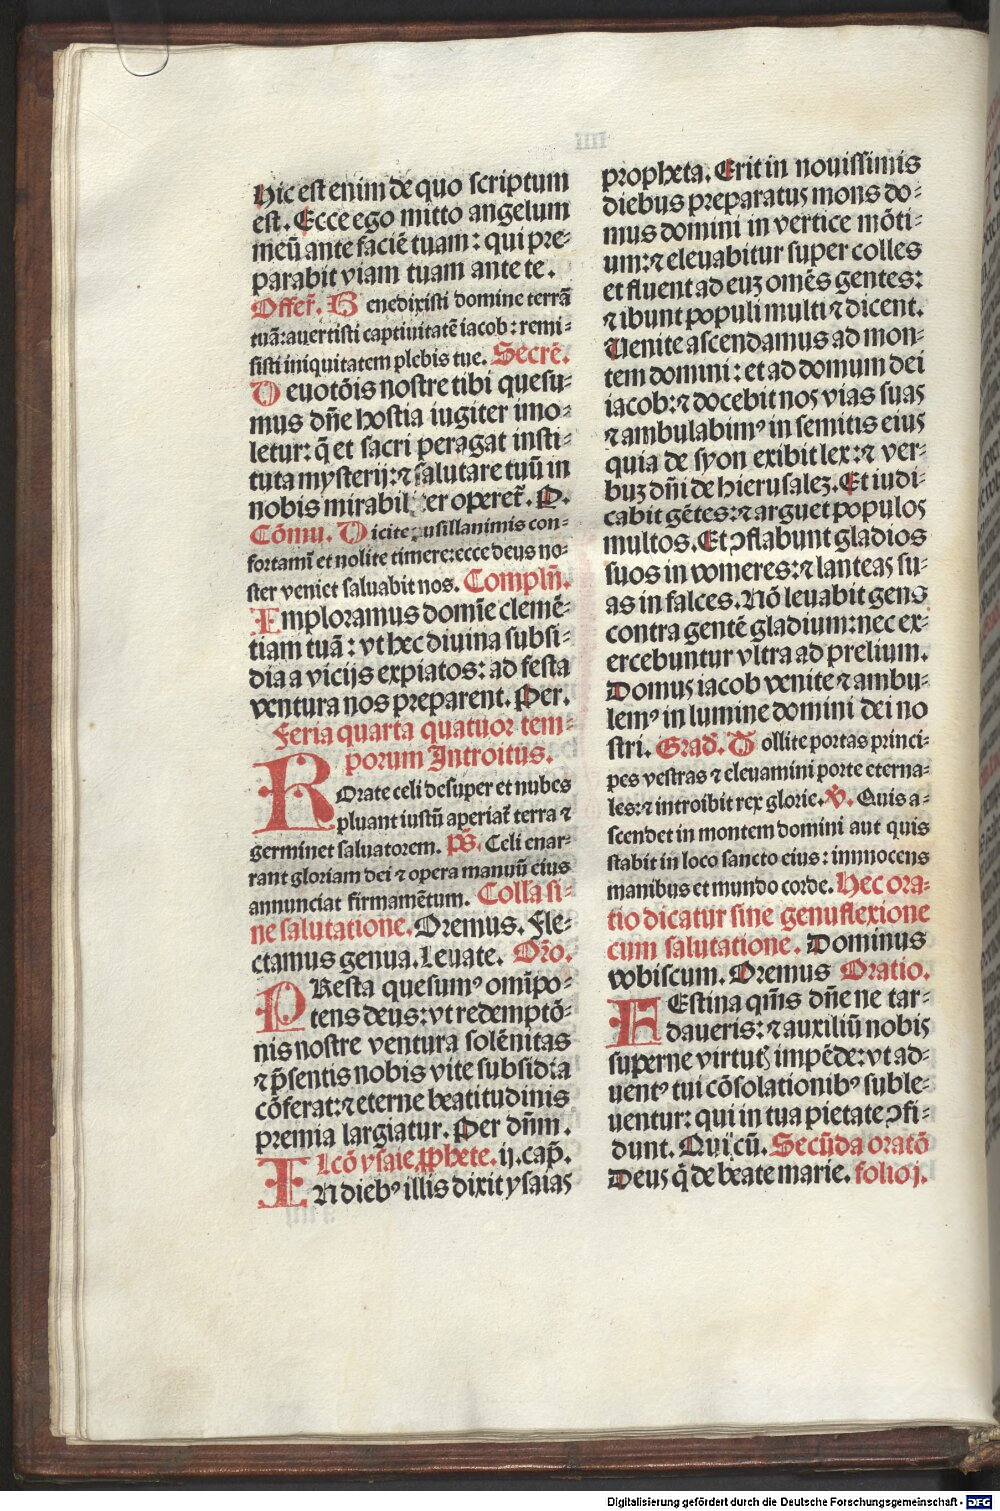 Hic est enim de quo scriptum
est. Ecce ego mitto angelum
meū ante faciē tuam: qui pre-
parabit viam tuam ante te.
Offer̄. Benedixisti domine terrā
tuā: auertisti captiuitatē iacob: remi-
sisti iniquitatem plebis tue. Secrē.
Deuotōis nostre tibi quesu-
mus dn̄e hostia iugiter imo-
letur: q̄ et sacri peragat insti-
tuta mysterij: ⁊ salutare tuū in
nobis mirabiliter operet̄. P.
Cōmu. Dicite pusillanimis con-
fortamī et nolite timere: ecce deus no-
ster veniet saluabit nos. Compln̄.
Imploramus domīe clemē-
tiam tuā: vt hec diuina subsi-
dia a vicijs expiatos: ad festa
ventura nos preparent. Per.
Feria quarta quatuor tem-
porum Introitus.
ROrate celi desuper et nubes
pluant iustū aperiat̄ terra ⁊
germinet saluatorem. Ps̄. Celi enar-
rant gloriam dei ⁊ opera manuū eius
annunciat firmamētum. Colla si-
ne salutatione. Oremus. Fle-
ctamus genua. Leuate. Or̄o.
PResta quesumꝰ omīpo-
tens deus: vt redemptō-
nis nostre ventura solēnitas
⁊ p̄sentis nobis vite subsidia
cōferat: ⁊ eterne beatitudinis
premia largiatur. Per dn̄m.
Lcō ysaie ꝓphete. ij. cap̄.
IN diebꝰ illis dixit ysaias
propheta. Erit in nouissimis
diebus preparatus mons do-
mus domini in vertice mōti-
um: ⁊ eleuabitur super colles
et fluent ad euꝫ omēs gentes:
⁊ ibunt populi multi ⁊ dicent.
Uenite ascendamus ad mon-
tem domini: et ad domum dei
iacob: ⁊ docebit nos vias suas
⁊ ambulabimꝰ in semitis eius
quia de syon exibit lex: ⁊ ver-
buꝫ dn̄i de hierusaleꝫ. Et iudi-
cabit gētes: ⁊ arguet populos
multos. Et ꝯflabunt gladios
suos in vomeres: ⁊ lanceas su-
as in falces. Nō leuabit gens
contra gentē gladium: nec ex-
ercebuntur vltra ad prelium.
Domus iacob venite ⁊ ambu-
lemꝰ in lumine domini dei no
stri. Grad. Tollite portas princi-
pes vestras ⁊ eleuamini porte eterna-
les: ⁊ introibit rex glorie. V̄. Quis a-
scendet in montem domini aut quis
stabit in loco sancto eius: innocens
manibus et mundo corde. Hec ora-
tio dicatur sine genuflexione
cum salutatione. Dominus
vobiscum. Oremus Oratio.
FEstina qm̄s dn̄e ne tar-
daueris: ⁊ auxiliū nobis
superne virtutꝭ impēde: vt ad-
uentꝰ tui cōsolationibꝰ suble-
uentur: qui in tua pietate ꝯfi-
dunt. Qui cū. Secūda oratō
Deus q̄ de beate marie. folio j.
Digitalisierung gefördert durch die Deutsche Forschungsgemeinschaft - DFG